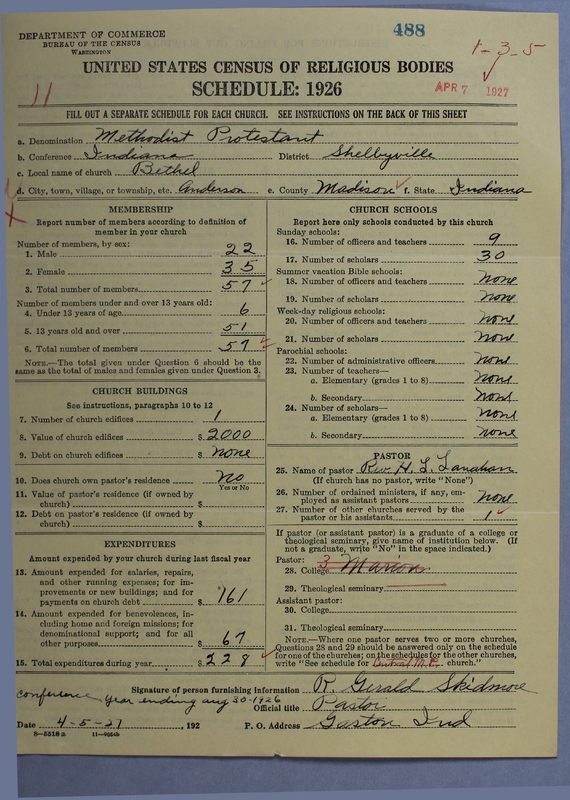 DEPARTMENT OF COMMERCE
BUREAU OF THE CENSUS
WASHINGTON
488
1-3-5
UNITED STATES CENSUS OF RELIGIOUS BODIES
SCHEDULE: 1926
APR 7 1927
11
FILL OUT A SEPARATE SCHEDULE FOR EACH CHURCH. SEE INSTRUCTIONS ON THE BACK OF THIS SHEET
a. Denomination Methodist Protestant
b. Conference Indiana District Shelbyville
c. Local name of church Bethel
d. City, town, village, or township, etc. Anderson e. County Madison f. State Indiana
MEMBERSHIP
Report number of members according to definition of
member in your church
Number of members, by sex:
1. Male 22
2. Female 35
3. Total number of members 57
Number of members under and over 13 years old:
4. Under 13 years of age 6
5. 13 years old and over 51
6. Total number of members 57
NOTE.—The total given under Question 6 should be the
same as the total of males and females given under Question 3.
CHURCH BUILDINGS
See instructions, paragraphs 10 to 12
7. Number of church edifices 1
8. Value of church edifices $ 2000
9. Debt on church edifices $ none
10. Does church own pastor's residence no
Yes or No
11. Value of pastor's residence (if owned by
church) $
12. Debt on pastor's residence (if owned by
church) $
EXPENDITURES
Amount expended by your church during last fiscal year
13. Amount expended for salaries, repairs,
and other running expenses; for im-
provements or new buildings; and for
payments on church debt $ 161
14. Amount expended for benevolences, in-
cluding home and foreign missions; for
denominational support; and for all
other purposes $ 67
15. Total expenditures during year $ 228
CHURCH SCHOOLS
Report here only schools conducted by this church
Sunday schools:
16. Number of officers and teachers 9
17. Number of scholars 30
Summer vacation Bible schools:
18. Number of officers and teachers none
19. Number of scholars none
Week-day religious schools:
20. Number of officers and teachers none
21. Number of scholars none
Parochial schools:
22. Number of administrative officers none
23. Number of teachers—
a. Elementary (grades 1 to 8) none
b. Secondary none
24. Number of scholars—
a. Elementary (grades 1 to 8) none
b. Secondary none
PASTOR
25. Name of pastor Rev. H. L. Lanahan
(If church has no pastor, write "None")
26. Number of ordained ministers, if any, em-
ployed as assistant pastors none
27. Number of other churches served by the
pastor or his assistants 1
If pastor (or assistant pastor) is a graduate of a college or
theological seminary, give name of institution below. (If
not a graduate, write "No" in the space indicated.)
Pastor:
28. College 3 Marion
29. Theological seminary
Assistant pastor:
30. College
31. Theological seminary
NOTE.—Where one pastor serves two or more churches,
Questions 28 and 29 should be answered only on the schedule
for one of the churches; on the schedules for the other churches,
write "See schedule for Central M.P. church."
Signature of person furnishing information R. Gerald Skidmore
Conference year ending aug 30-1926
Official title Pastor
Date 4-5-27, 192 P. O. Address Gaston Ind
8—5518 a 11—9054b